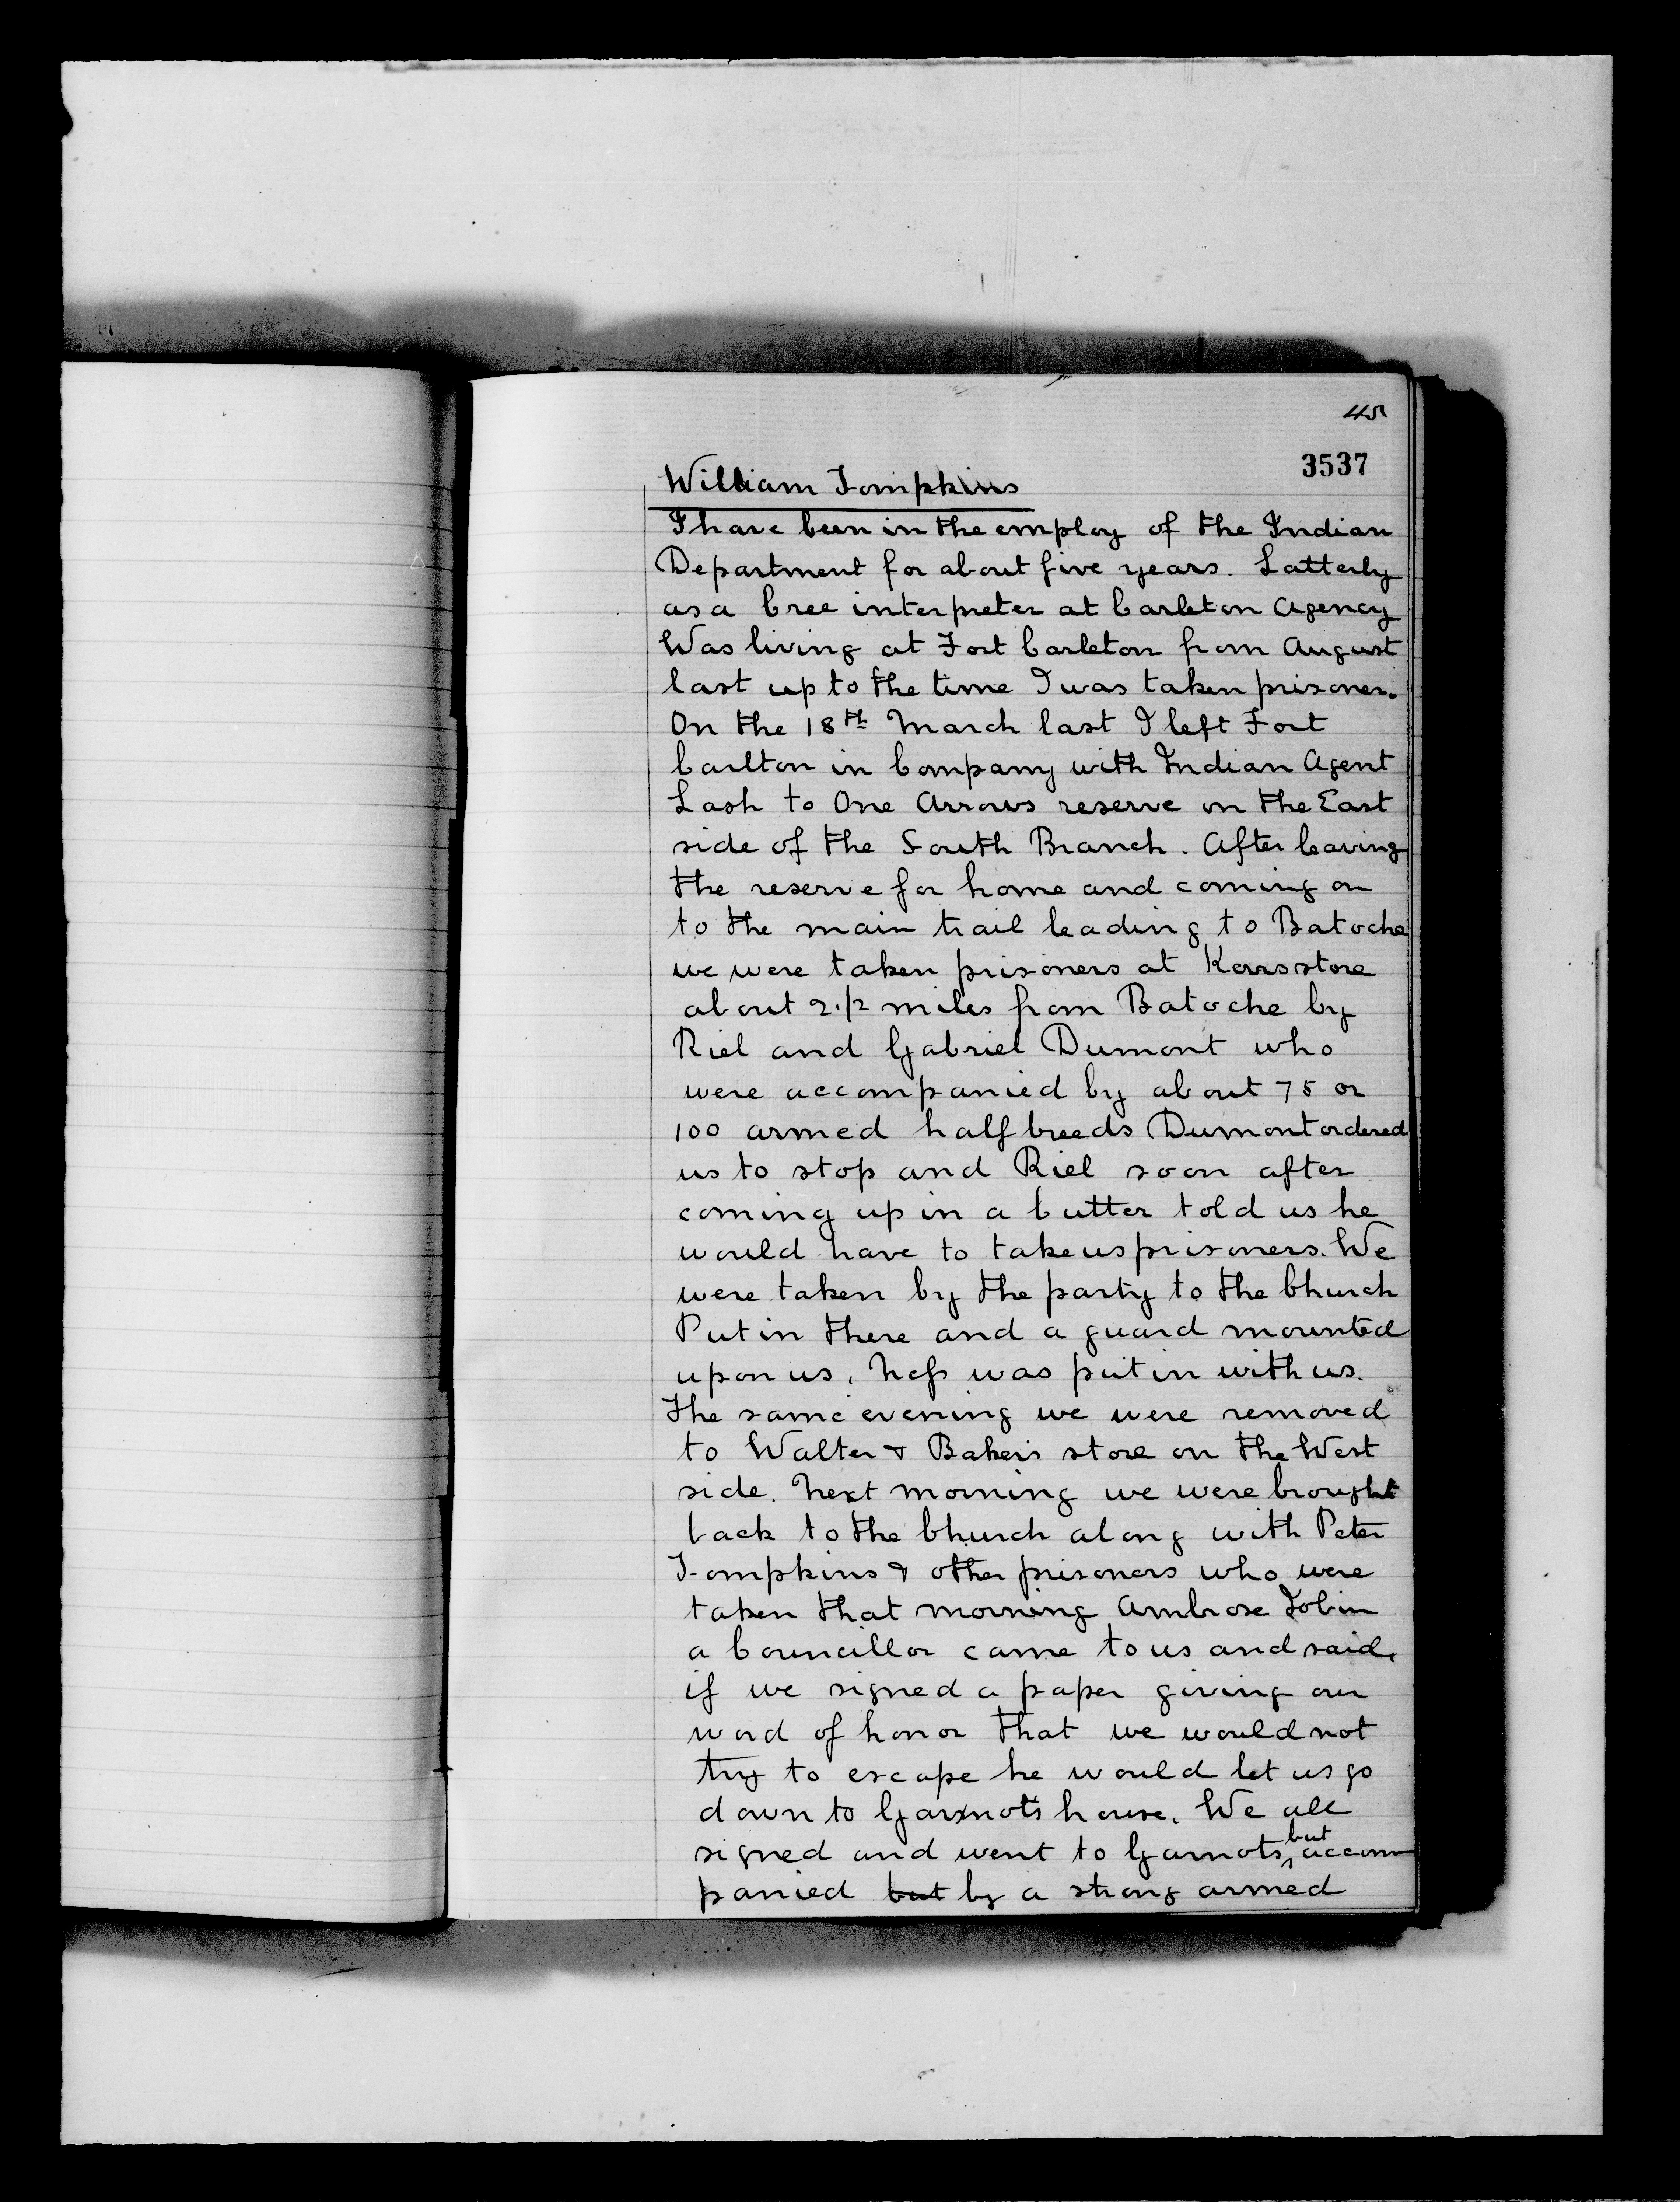 45
3537
William Tompkins
I have been in the employ of the Indian
Department for about five years. Latterly
as a Cree interpreter at Carleton Agency
Was living at Fort Carleton from August
last up to the time I was taken prisoner.
On the 18th March last I left Fort
Carlton in Company with Indian Agent
Lash to One Arrows reserve on the East
side of the South Branch. After leaving
the reserve for home and coming on
to the main trail leading to Batoche
we were taken prisoners at Kerrs store
about 2 1/2 miles from Batoche by
Riel and Gabriel Dumont who
were accompanied by about 75 or
100 armed half breeds Dumont ordered
us to stop and Riel soon after
coming up in a Cutter told us he
would have to take us prisoners. We
were taken by the party to the Church
Put in there and a guard mounted
upon us, Ness was put in with us.
The same evening we were removed
to Walter & Baker's store on the West
side. Next morning we were brought
back to the Church along with Peter
Tompkins & other prisoners who were
taken that morning Ambrose Jobin
a Councillor came to us and said,
if we signed a paper giving our
word of honor that we would not
try to escape he would let us go
down to Garnot's house. We all
signed and went to Garnots, but accom
panied but by a strong armed